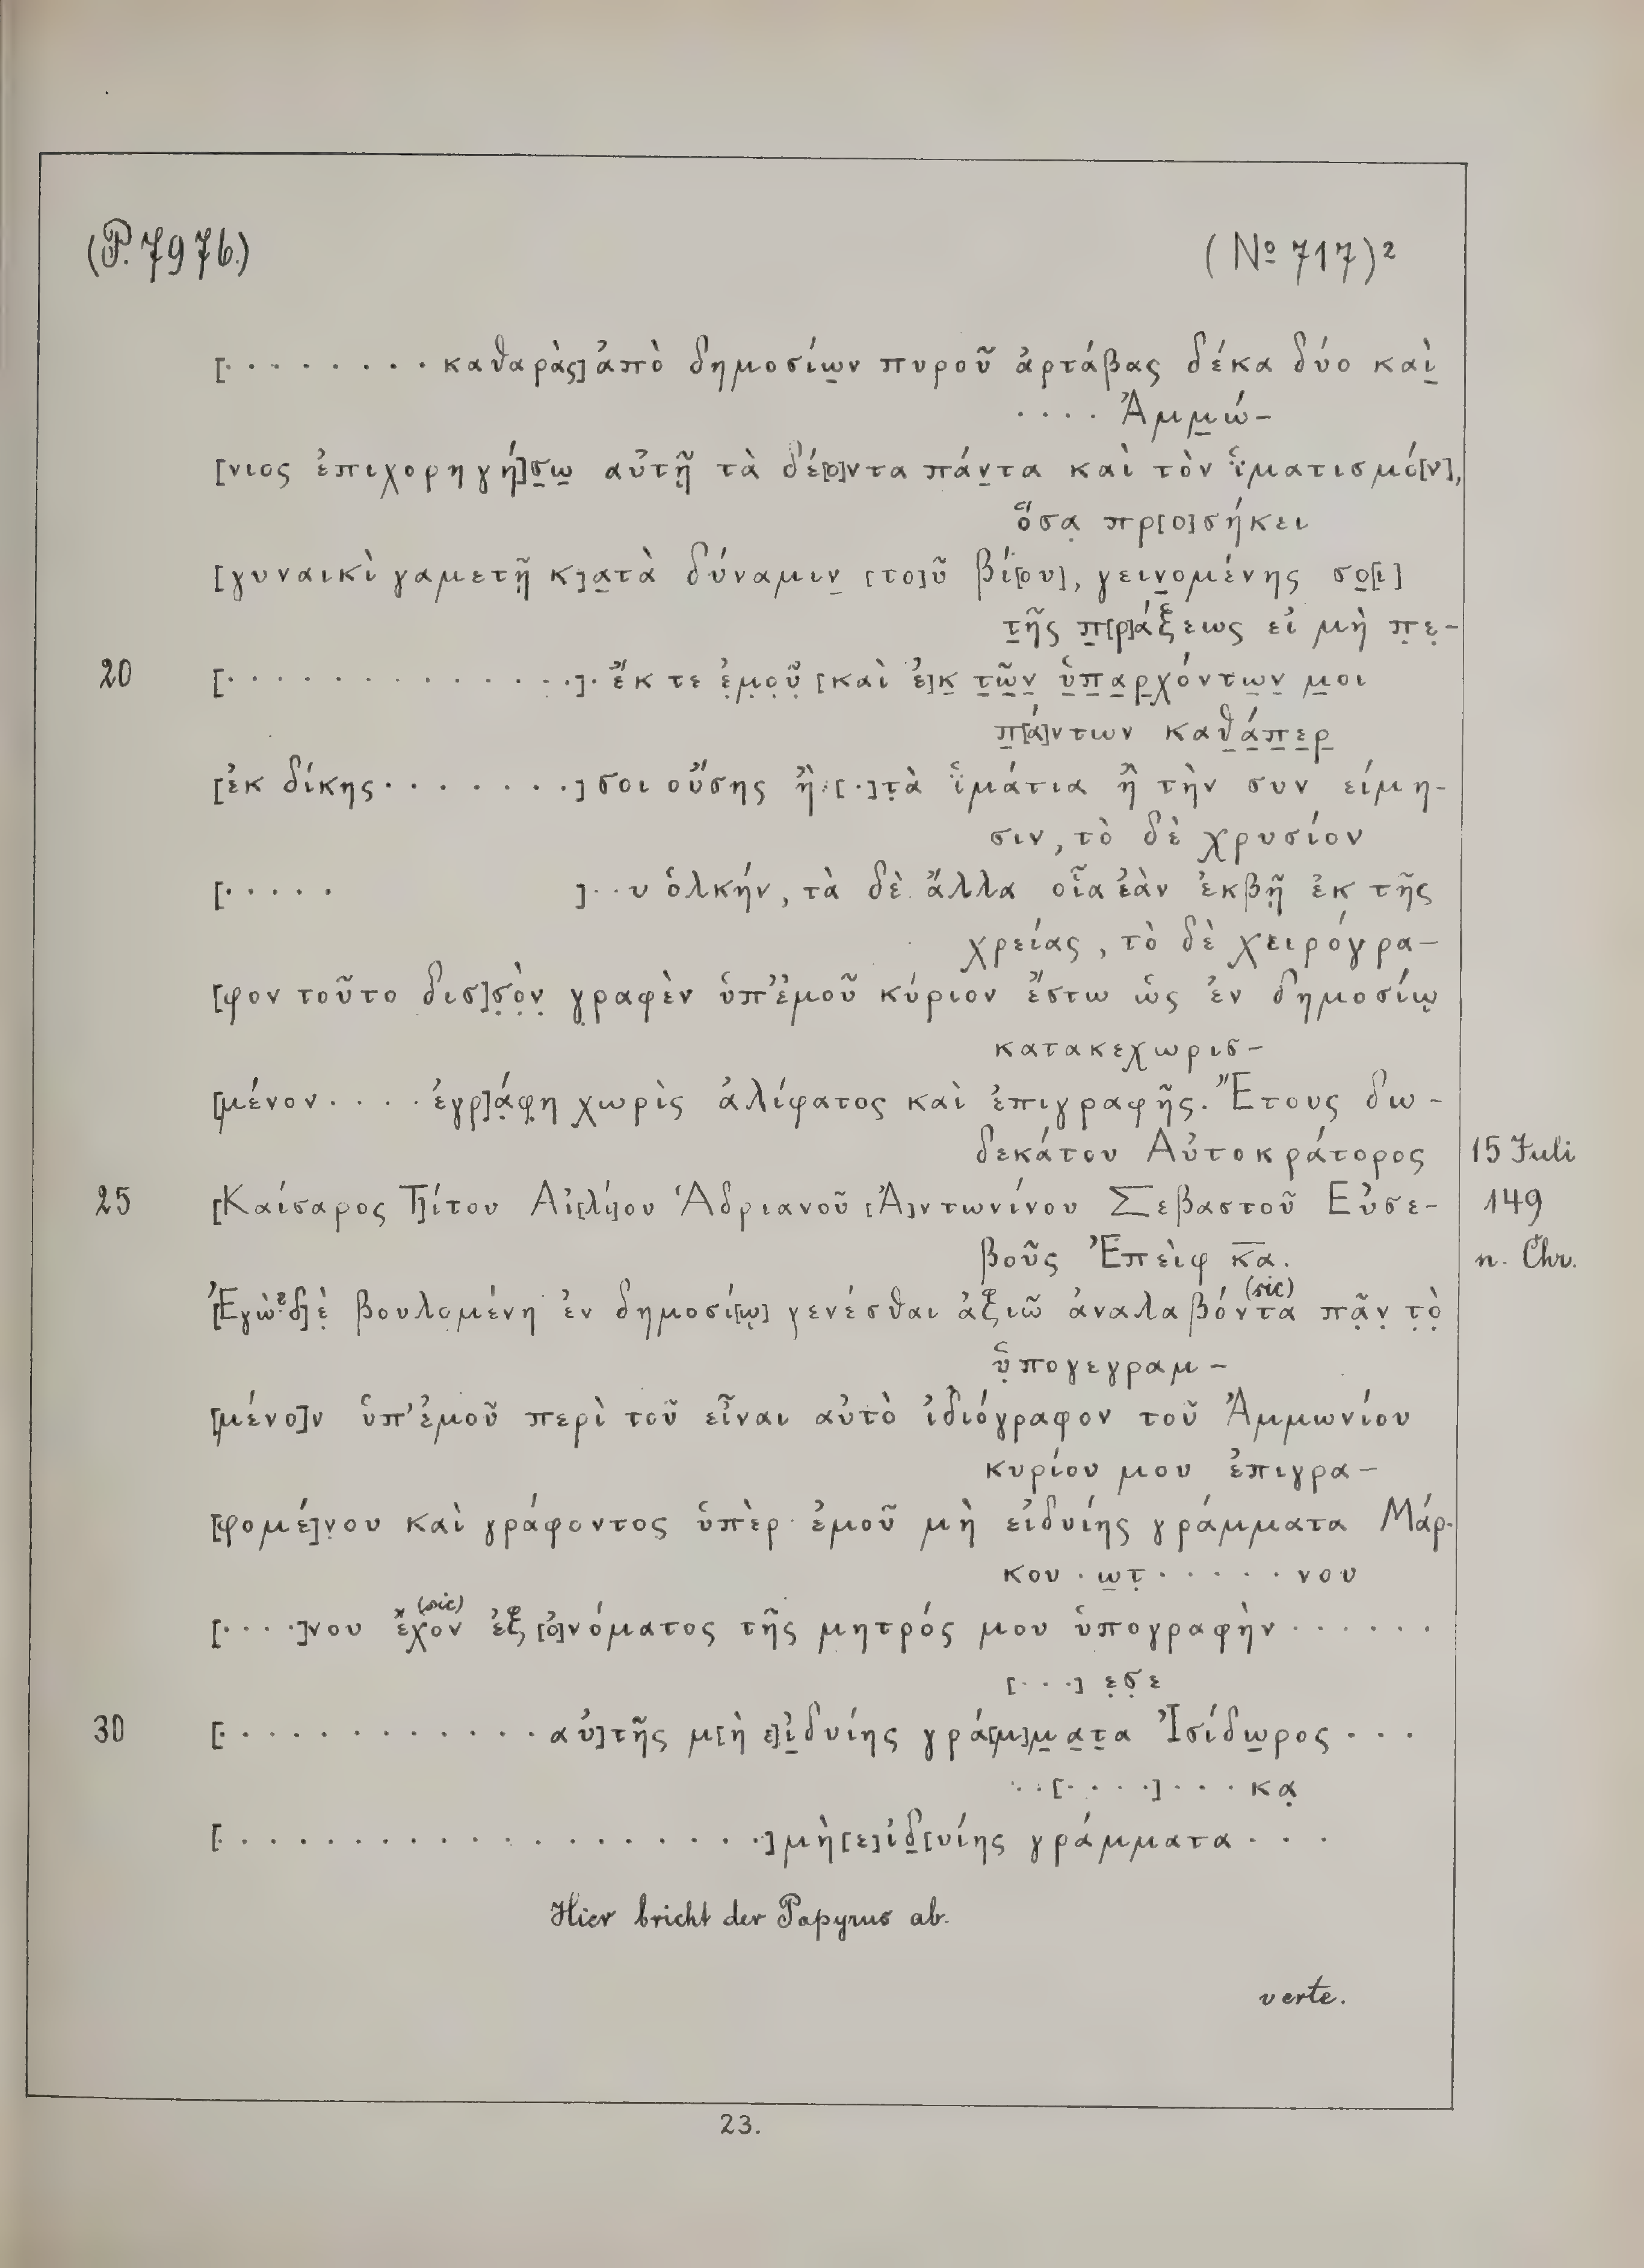 (P. 7976.)
(No 717)²
[· · · · · · · · καθαρὰς] ἀπὸ δημοσίω̣ν πυροῦ ἀρτάβας δέκα δύο καὶ̣
· · · · Ἀμμ̣ώ-
[νιος ἐπιχορηγή]σ̣ω̣ αὐτῇ τὰ δέ[ο]ντα πάν̣τα καὶ τὸν ἱ̈ματισμό[ν],
ὅσα̣ πρ[ο]σήκει
[γυναικὶ γαμετῇ κ]α̣τὰ δύναμιν̣ [το]ῦ βί[ου], γειν̣ομένης σο̣[ι]
τ̣ῆς π̣[ρ]άξεως εἰ μὴ π̣ε̣-
20 [· · · · · · · · · · · · · ·]· ἔκ τε ἐ̣μ̣ο̣ῦ̣ [καὶ ἐ]κ̣ τ̣ῶ̣ν̣ ὑ̣π̣α̣ρ̣χόντω̣ν̣ μ̣οι
π̣[ά]ντων καθ̣ά̣π̣ε̣ρ̣
[ἐκ δίκης · · · · · · · ·] σοι οὔσης ἢ : [·] τ̣ὰ ἱ̈μάτια ἢ τὴν συν είμη-
σιν, τὸ δὲ χρυσίον
[· · · · · ]· · υ ὁλκήν, τὰ δὲ ἄλλα οἷα ἐὰν ἐκβῇ ἐκ τῆς
χρείας, τὸ δὲ χειρόγρα-
[φον τοῦτο δισ]σ̣ὸ̣ν̣ γ̣ραφὲν ὑπ' ἐμοῦ κύριον ἔστω ὡς ἐν δημοσίῳ
κατακεχωρισ-
[μένον · · · · ἐγρ]ά̣φ̣η χωρὶς ἀλίφατος καὶ ἐπιγραφῆς. Ἔτους δω-
δεκάτου Αὐτοκράτορος
15 Juli
25 [Καίσαρος Τ]ίτου Αἰ[λί]ου Ἁδριανοῦ [Ἀ]ντωνίνου Σεβαστοῦ Εὐσε-
149
βοῦς Ἐπεὶφ κ̅α̅.
n. Chr.
[Ἐγὼ? δ]ὲ̣ βουλομένη ἐν δημοσί[ῳ] γενέσθαι ἀξιῶ ἀναλαβόντα (sic) πᾶ̣ν̣ τ̣ὸ̣
ὑ̣πογεγραμ-
[μένο]ν ὑπ' ἐμοῦ περὶ τοῦ εἶναι αὐτὸ ἰδιόγραφον τοῦ Ἀμμωνίου
κυρίου μου ἐπιγρα-
[φομέ]ν̣ου καὶ γράφοντος ὑπὲρ ἐμοῦ μὴ εἰδυίης γράμματα Μάρ-
κου · ω̣τ̣ · · · · · · νου
[· · · ·]νου ἔχον (sic) ἐξ [ὀ]νόματος τῆς μητρός μου ὑπογραφὴν · · · · · ·
[· · ·] ε̣σ̣ε
30 [· · · · · · · · · · · · · αὐ]τῆς μ[ὴ ε]ἰ̣δυίης γρά[μ]μ̣α̣τ̣α Ἰσίδω̣ρος · · ·
· · [· · · ·] · · · κα̣
[· · · · · · · · · · · · · · · · · · ·] μὴ [ε]ἰδ̣[υίης γράμματα · · ·
Hier bricht der Papyrus ab.
verte.
23.